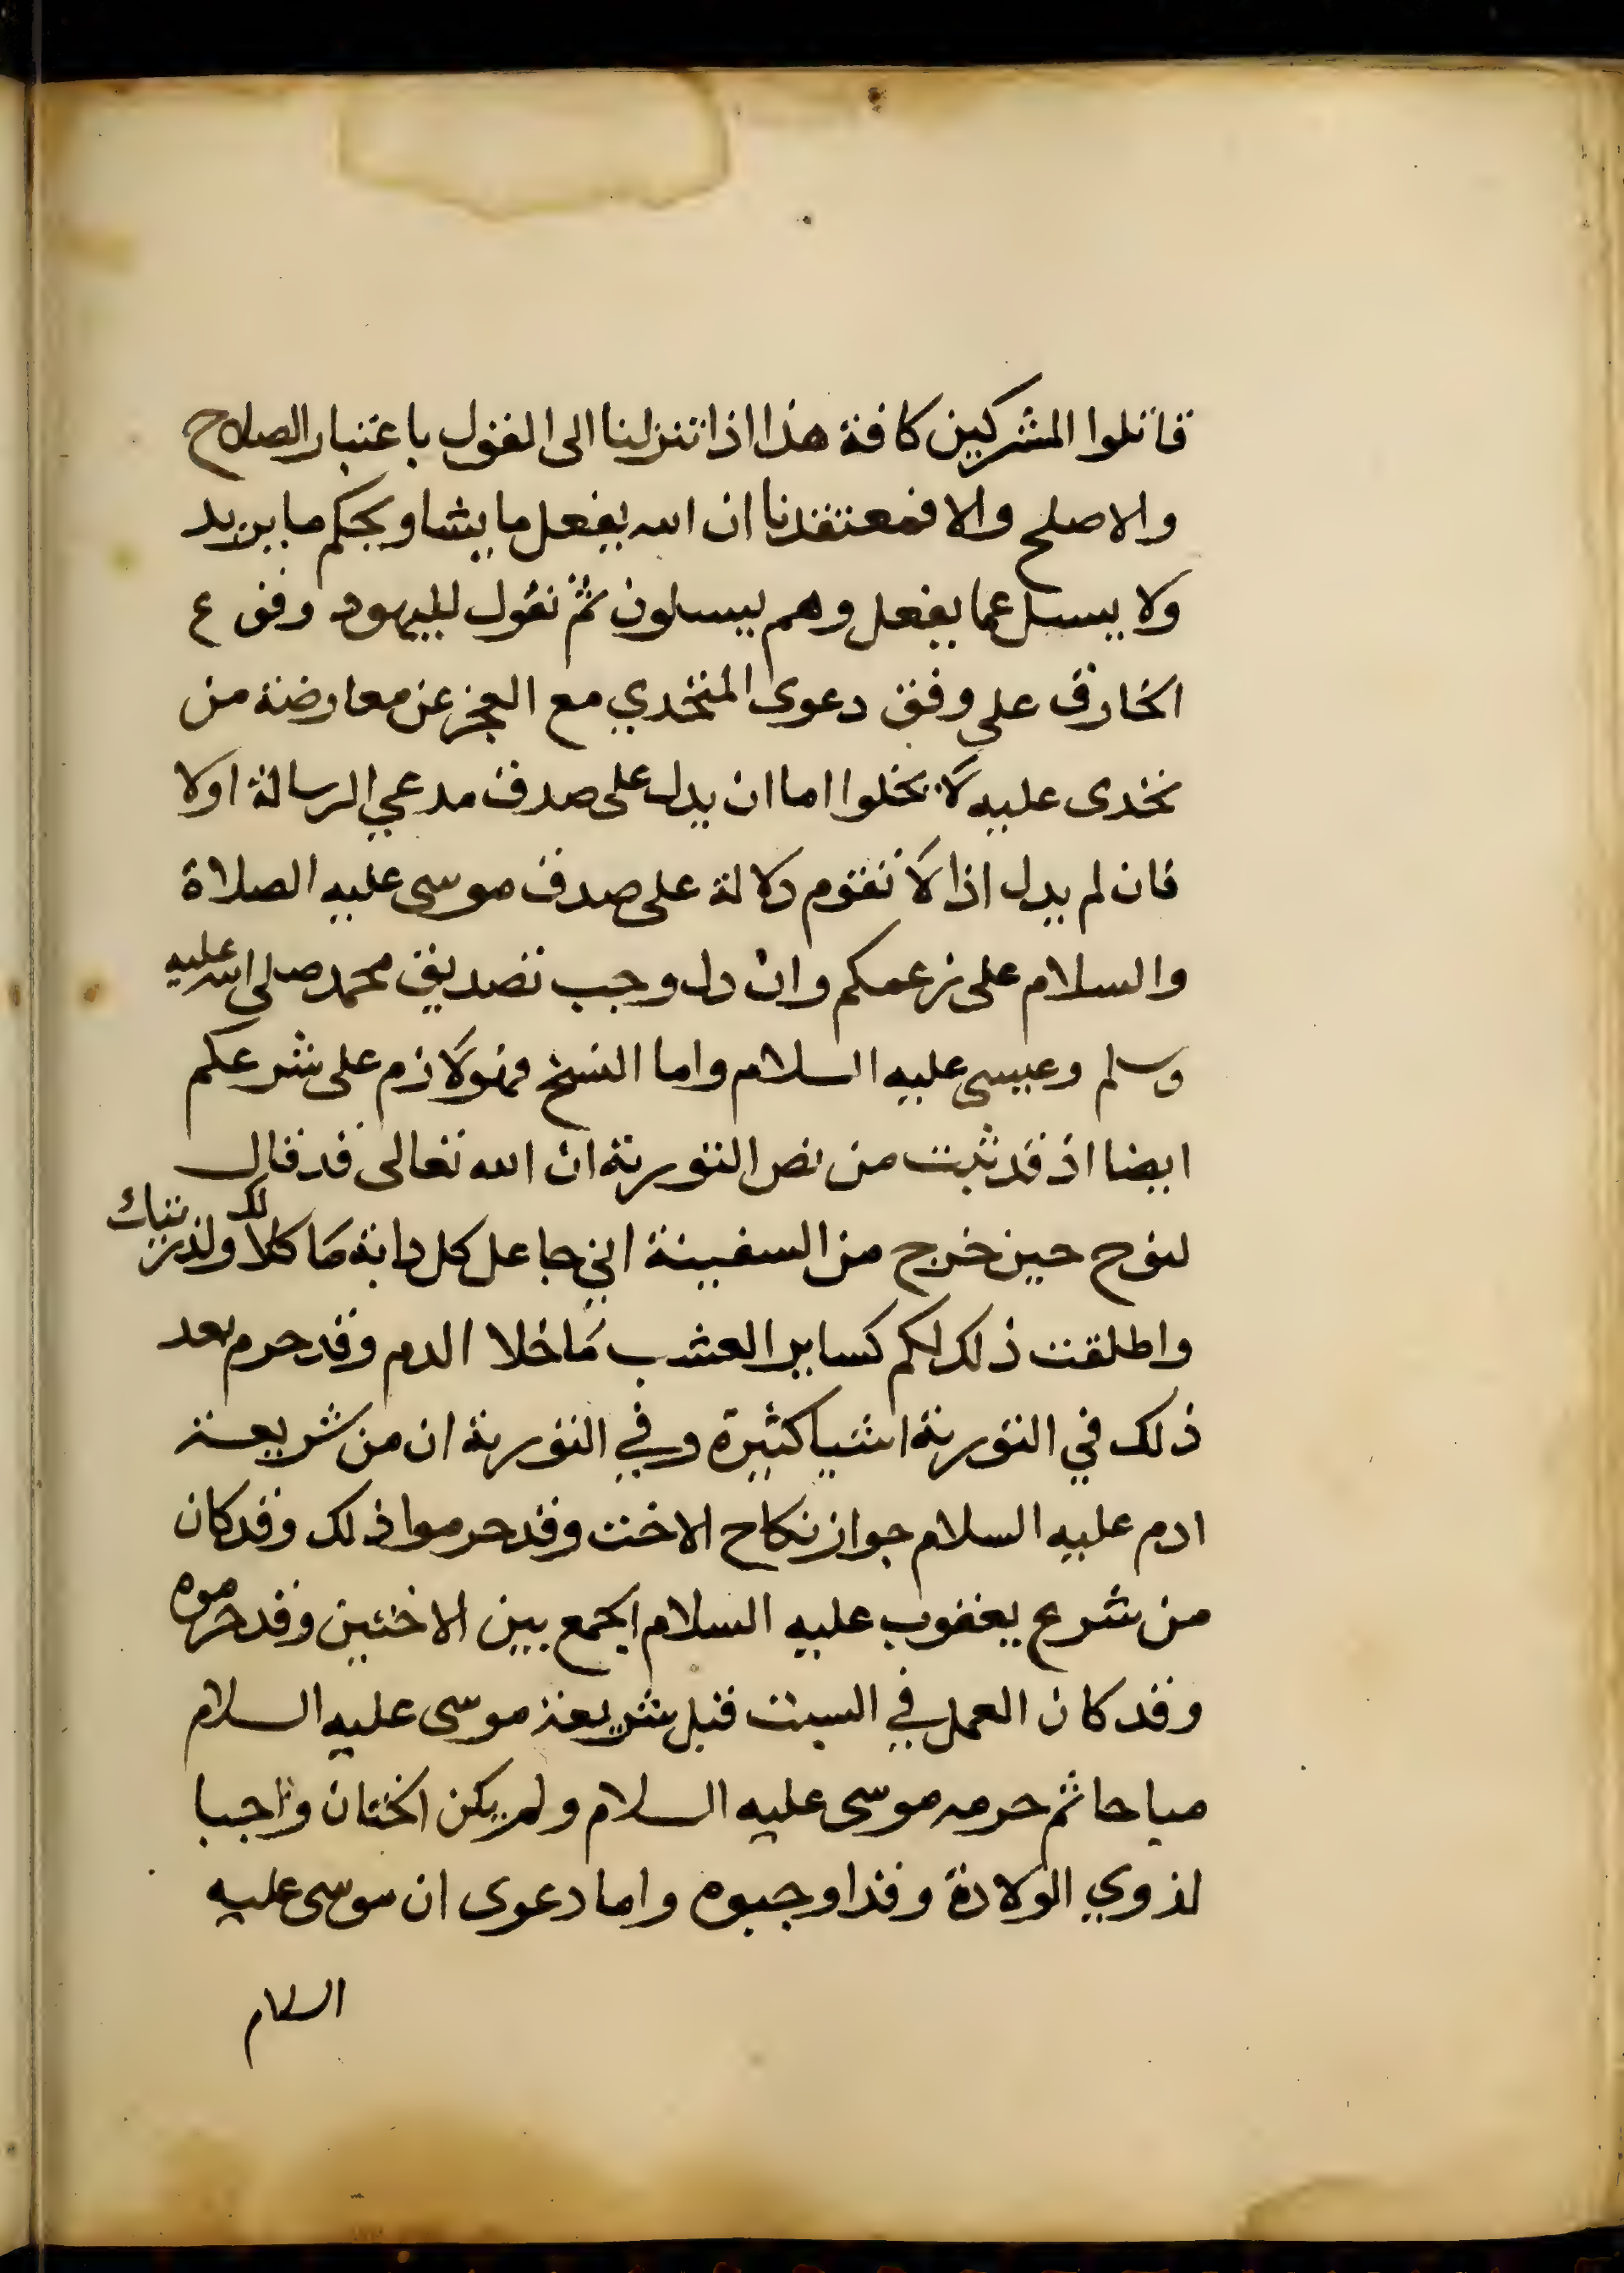 قاتلوا المشركين كافة هذا اذا تنزلنا الى القول باعتبار الصلاح
والاصلح والا فمعتقدنا ان الله يفعل ما يشا ويحكم ما يريد
ولا يسل عما يفعل وهم يسلون ثم نقول لليهود وقوع
الخارق على وفق دعوى المتحدي مع العجز عن معارضة من
تحدى عليه لا يخلوا اما ان يدل على صدق مدعي الرسالة اولا
فان لم يدل اذا لا تقوم دلالة على صدق موسى عليه الصلاة
والسلام على زعمكم وان دل وجب تصديق محمد صلى الله عليه
وسلم وعيسى عليه السلام واما النسخ فهو لازم على شرعكم
ايضا اذ قد ثبت من نص التورية ان الله تعالى قد قال
لنوح حين خرج من السفينة اني جاعل كل دابة ماكلا لك ولذريتك
واطلقت ذلك لكم كساير العشب ما خلا الدم وقد حرم بعد
ذلك في التورية اشيا كثيرة وفي التورية ان من شريعة
ادم عليه السلام جواز نكاح الاخت وقد حرموا ذلك وقد كان
من شرع يعقوب عليه السلام الجمع بين الاختين وقد حرموه
وقد كان العمل في السبت قبل شريعة موسى عليه السلام
مباحا ثم حرمه موسى عليه السلام ولم يكن الختان واجبا
لذوي الولادة وقد اوجبوه واما دعوى ان موسى عليه
السلام